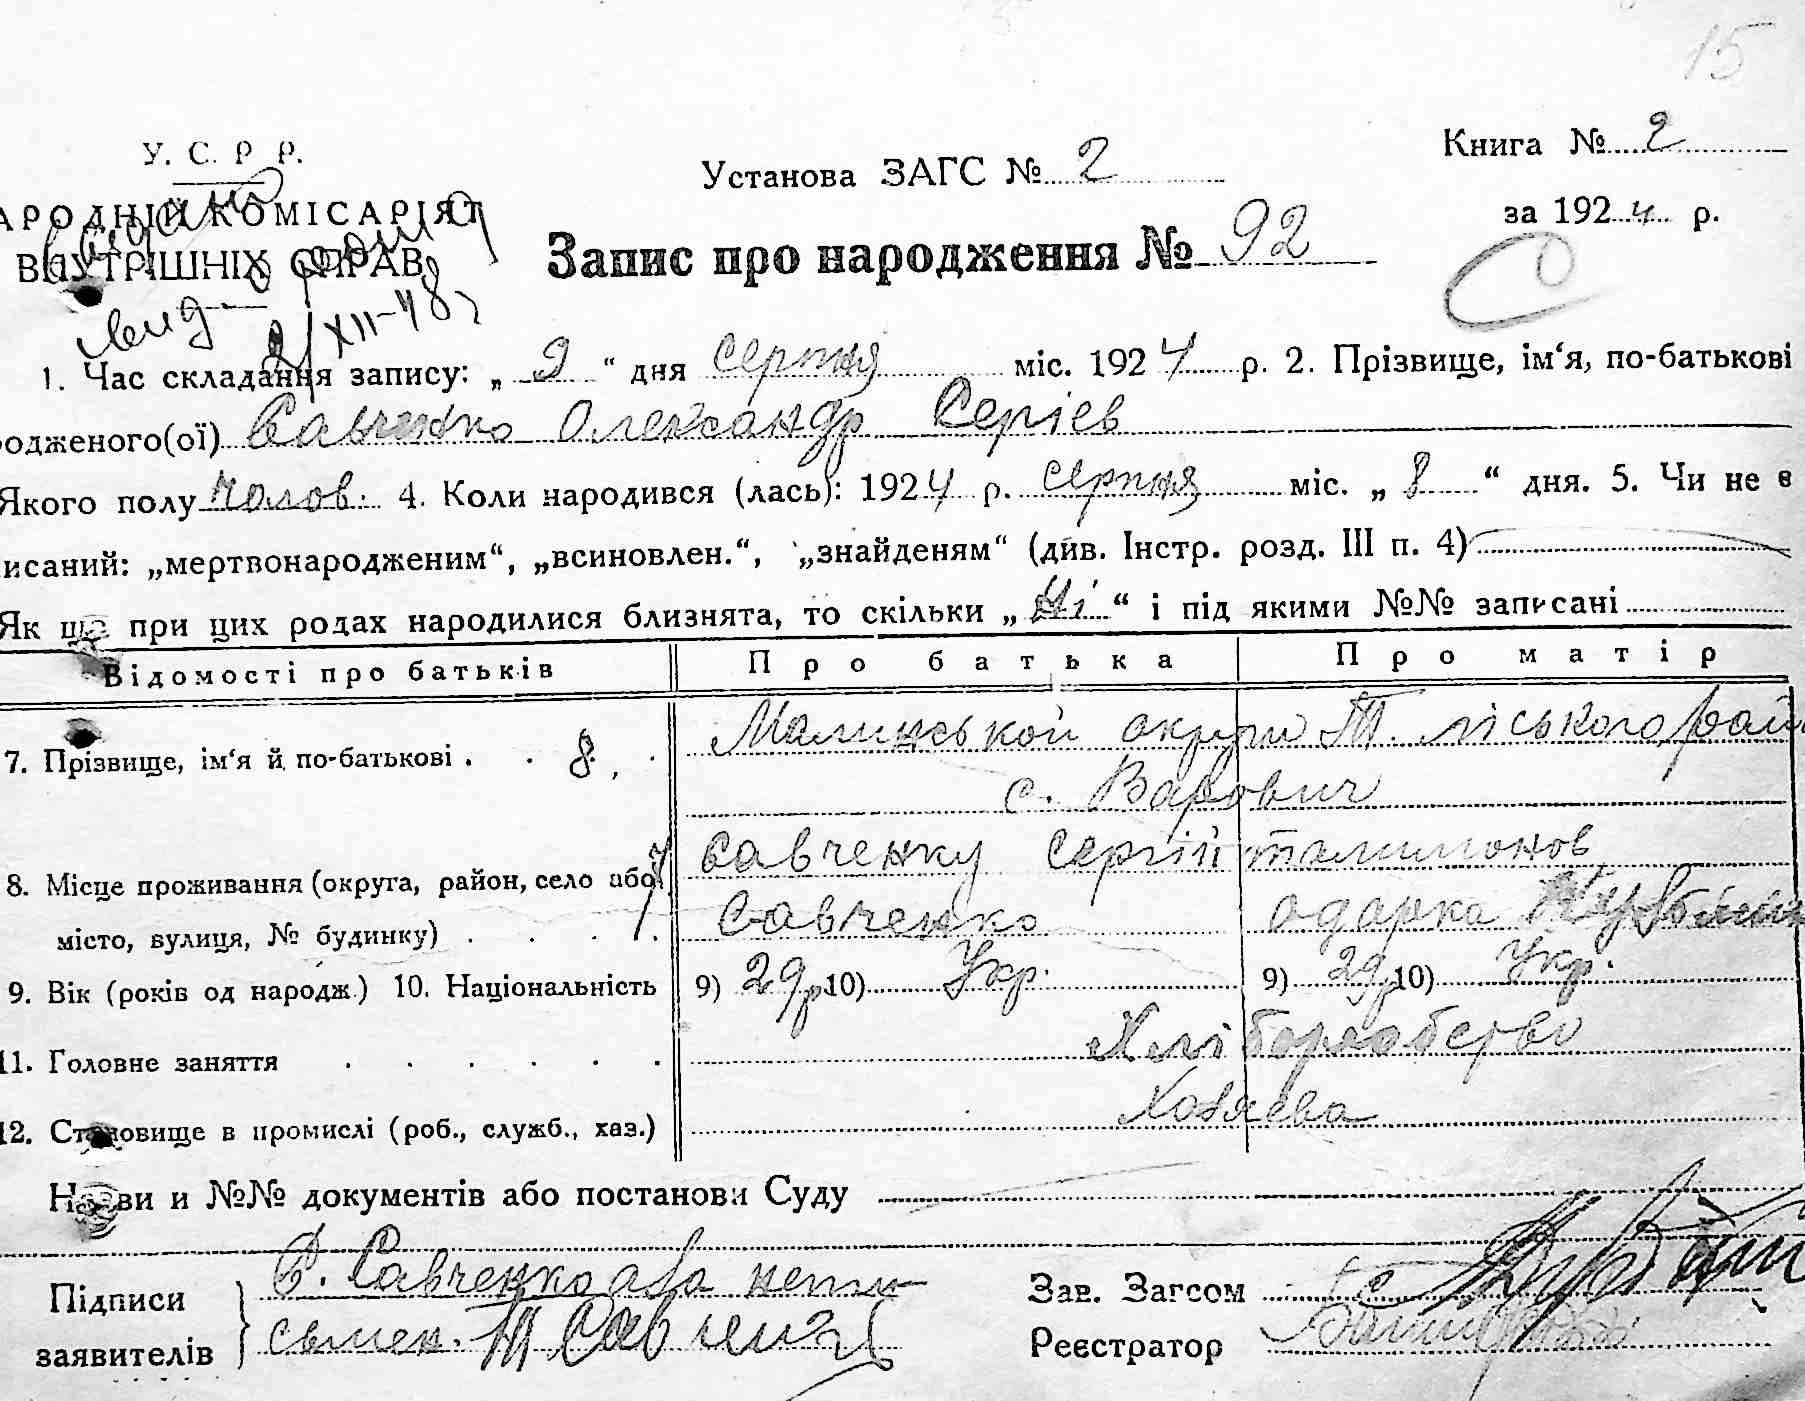 15
У. С. Р. Р.
Установа ЗАГС № 2
Книга № 2
АРОДНІЙ КОМІСАРІЯТ
за 1924 р.
ВНУТРІШНІХ СПРАВ
Запис про народження № 92
С
2/XII-48
1. Час складання запису: „ 9 “ дня серпня міс. 1924 р. 2. Прізвище, ім‘я, по-батькові
одженого(ої) Савченко Олександр Сергіев
Якого полу чолов. 4. Коли народився (лась): 1924 р. серпня міс. „ 8 “ дня. 5. Чи не є
исаний: „мертвонародженим“, „всиновлен.“, „знайденям“ (див. Інстр. розд. III п. 4)
Як що при цих родах народилися близнята, то скільки „ Ні “ і під якими №№ записані
Відомості про батьків Про батька Про матір
7. Прізвище, ім‘я й по-батькові . . 8. Малинської округи
с. Варович
8. Місце проживання (округа, район, село або 7 Савченку Сергій
місто, вулиця, № будинку) . . . . Савченко одарка
9. Вік (років од народж.) 10. Національність 9) 29р 10) Укр. 9) 29р 10) Укр.
11. Головне заняття . . . . . . Хліборобство
12. Становище в промислі (роб., служб., хаз.) Хозяєва
Назви и №№ документів або постанови Суду
Підписи С. Савченко
заявителів
Зав. Загсом
Реєстратор